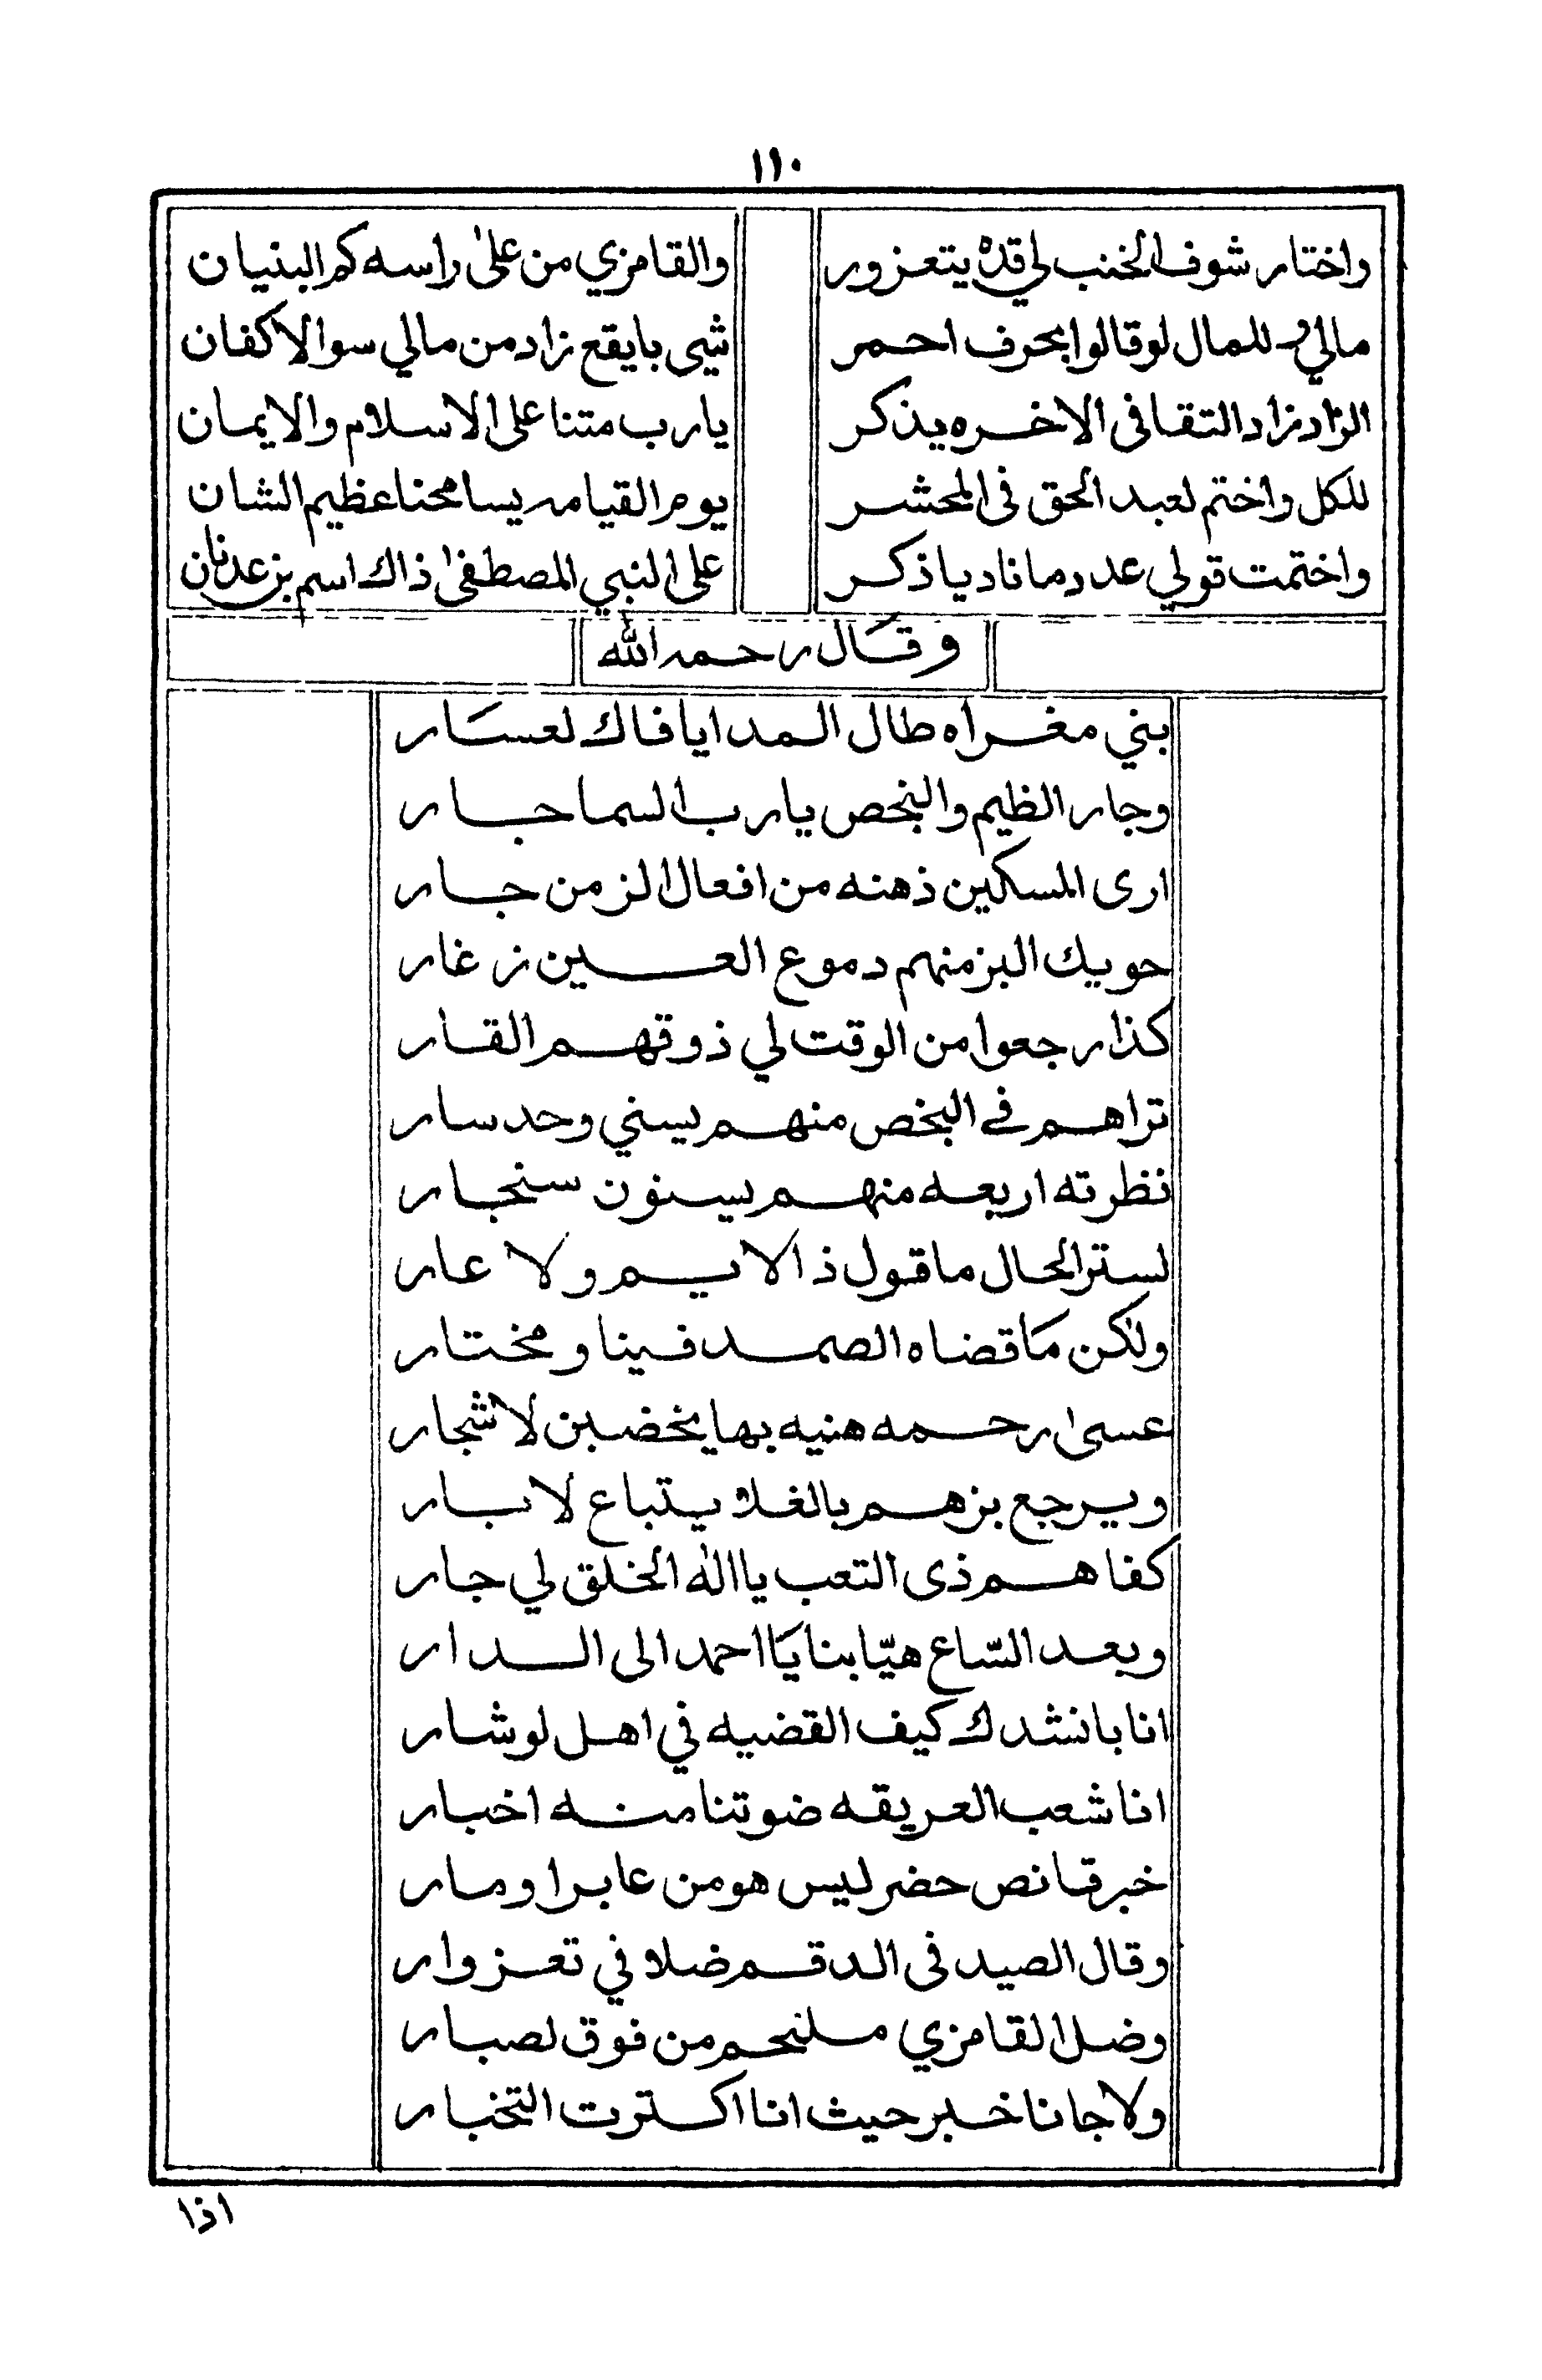 ١١٠
واختار شوف الخنب لي قده يتعزور والقامزي من على راسه كم البنيان
مالي وللمال لو قالوا بحرف احمر شيى بايقع زاد من مالي سوا الاكفان
الزاد زاد التقا فى الاخره يذكر يارب متنا على الاسلام والايمان
للكل واختم لعبد الحق فى المحشر يوم القيامه يسامحنا عظيم الشان
واختمت قولي عدد ما ناديا ذكر على النبي المصطفى ذاك اسم بن عدنان
وقال رحمه الله
بني مغراه طال المدا يا فاك لعسار
وجار الظيم والبخص يارب السما جار
ارى المسكين ذهنه من افعال الزمن جار
حويك البز منهم دموع العين زغار
كذا رجعوا من الوقت لي ذوقهم القار
تراهم في البخص منهم يسني وحد سار
نظرته اربعه منهم يسنون سنجار
لستر الحال ما قول ذا لايم ولا عار
ولكن ما قضاه الصمد فينا ومختار
عسى رحمه هنيه بها يخضبن لاشجار
ويرجع بزهم بالغلا يتباع لابار
كفاهم ذى التعب يا اله الخلق لي جار
وبعد السّاع هيّا بنا يا احمد الى الدار
انا بانشدك كيف القضيه في اهل لوشار
انا شعب العريقه ضوتنا منه اخبار
خبر قانص حضر ليس هو من عابر اومار
وقال الصيد فى الدقم ضلا في تعزوار
وضل القامزي ملنحم من فوق لصبار
ولا جانا خبر حيث انا اكترت التخبار
اذا